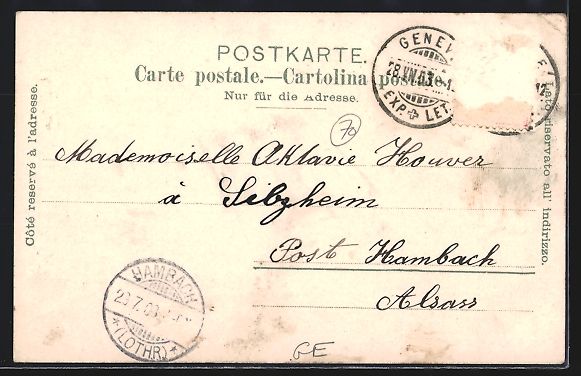 POSTKARTE.
Carte postale.—Cartolina postale.
Nur für die Adresse.
Côté reservé à l'adresse.
Lato riservato all' indirizzo.
GENEV
28.VII.03.-1
EXP LET
12
70
Mademoiselle Aktavie Houver
à Silzheim
Post Hambach
Alsass
HAMBACH
29.7.03
*(LOTHR)*
GE